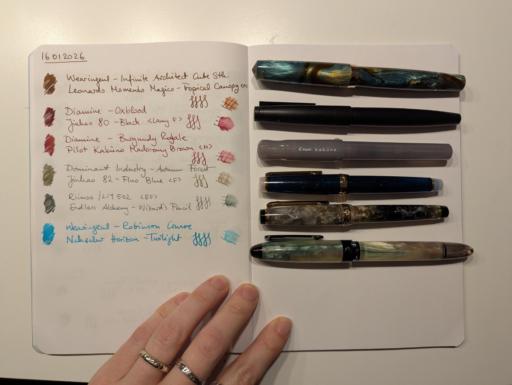 16.01.2026
Wearingeul - Infinite Architect Cube Sth.
Leonardo Momento Magico - Tropical Canopy
Diamine - Oxblood
Jinhao 80 - Black
Diamine - Burgundy Royale
Pilot Kakuno Madorong Brown <M>
Dominant Industry - Autumn Forest
Jinhao 82 - Blue <F>
<EF>
Endless Alchemy - Wizard's Pencil
Wearingeul - Robinson Crusoe
Nahvalur Horizon - Twilight